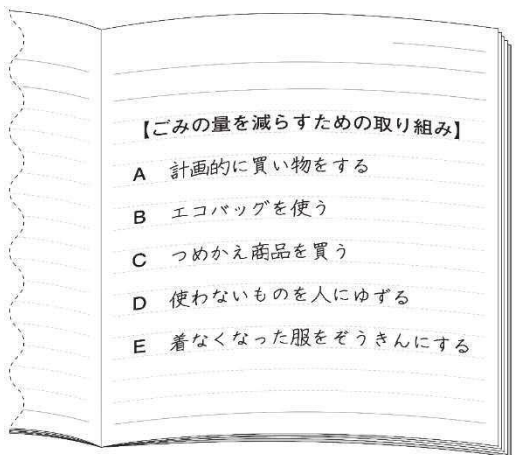 【ごみの量を減らすための取り組み】
A 計画的に買い物をする
B エコバッグを使う
C つめかえ商品を買う
D 使わないものを人にゆずる
E 着なくなった服をぞうきんにする